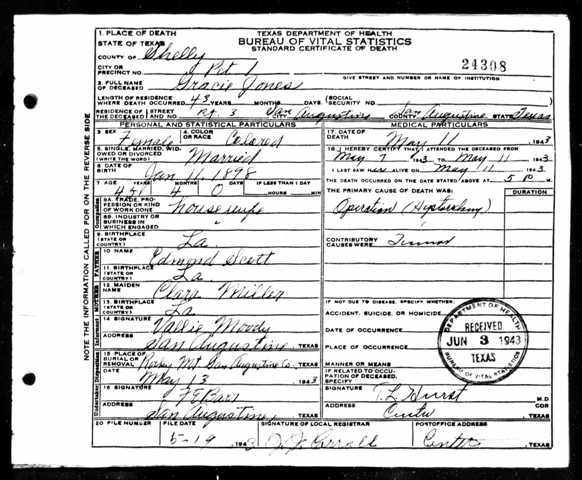 NOTE THE INFORMATION CALLED FOR ON THE REVERSE SIDE
1. PLACE OF DEATH
STATE OF TEXAS
TEXAS DEPARTMENT OF HEALTH
BUREAU OF VITAL STATISTICS
STANDARD CERTIFICATE OF DEATH
COUNTY OF Shelby
24308
CITY OR PRECINCT NO. Pct 1
GIVE STREET AND NUMBER OR NAME OF INSTITUTION
2. FULL NAME OF DECEASED Gracie Jones
LENGTH OF RESIDENCE WHERE DEATH OCCURRED 43 YEARS MONTHS DAYS (SOCIAL SECURITY NO.
RESIDENCE OF THE DECEASED STREET AND NO. Rt 3 San Augustine COUNTY San Augustine STATE Texas
PERSONAL AND STATISTICAL PARTICULARS
MEDICAL PARTICULARS
3. SEX Female
4. COLOR OR RACE Colored
5. SINGLE, MARRIED, WIDOWED OR DIVORCED (WRITE THE WORD) Married
6. DATE OF BIRTH Jan 11, 1898
7. AGE YEARS MONTHS DAYS IF LESS THAN 1 DAY
4 0 HOURS MIN
8A. TRADE, PROFESSION OR KIND OF WORK DONE housewife
8B. INDUSTRY OR BUSINESS IN WHICH ENGAGED "
9. BIRTHPLACE (STATE OR COUNTRY) La
10. NAME Edmond Scott
11. BIRTHPLACE (STATE OR COUNTRY) La
12. MAIDEN NAME Clara
13. BIRTHPLACE (STATE OR COUNTRY) La
14. SIGNATURE Vallie Moody
ADDRESS San Augustine, TEXAS
15. PLACE OF BURIAL OR REMOVAL Rocky Mt. San Augustine Co. TEXAS
DATE May 13 1943
16. SIGNATURE
ADDRESS San Augustine, TEXAS
17. DATE OF DEATH May 11 1943
18. I HEREBY CERTIFY THAT I ATTENDED THE DECEASED FROM
May 7 1943 TO May 11 1943
I LAST SAW her ALIVE ON May 11 1943
THE DEATH OCCURRED ON THE DATE STATED ABOVE AT 5 10 M.
THE PRIMARY CAUSE OF DEATH WAS: DURATION
Operation
CONTRIBUTORY CAUSES WERE:
IF NOT DUE TO DISEASE, SPECIFY WHETHER:
ACCIDENT, SUICIDE, OR HOMICIDE
DATE OF OCCURRENCE
PLACE OF OCCURRENCE
MANNER OR MEANS
IF RELATED TO OCCUPATION OF DECEASED, SPECIFY
SIGNATURE T. L. Hurst M.D
ADDRESS Center TEXAS
DEPARTMENT OF HEALTH
RECEIVED
JUN 3 1943
TEXAS
BUREAU OF VITAL STATISTICS
20 FILE NUMBER FILE DATE SIGNATURE OF LOCAL REGISTRAR POSTOFFICE ADDRESS
5-19 1943 Center, TEXAS